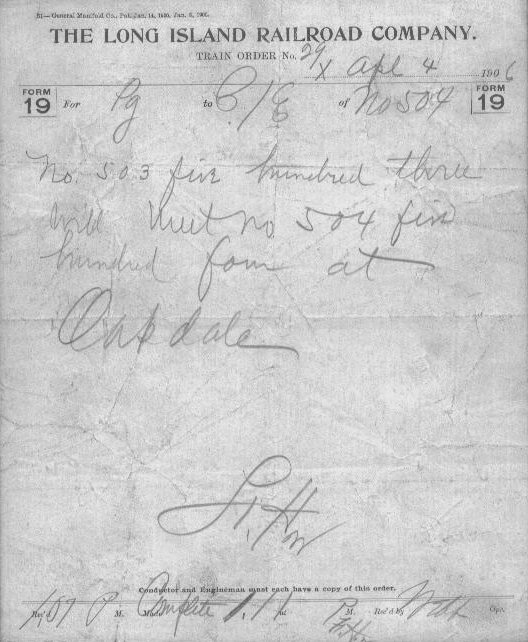 51—General Manifold Co., Pat. Jan. 14, 1896, Jan. 5, 1906.
THE LONG ISLAND RAILROAD COMPANY.
TRAIN ORDER No. 29
X Apl 4 1906
FORM 19 For Pg to C/E of No 504 FORM 19
No. 503 five hundred three
will meet no 504 five
hundred four at
Oakdale
Conductor and Engineman must each have a copy of this order.
Rec'd 1 57 P M. Made Complete at M. Rec'd by Opr.